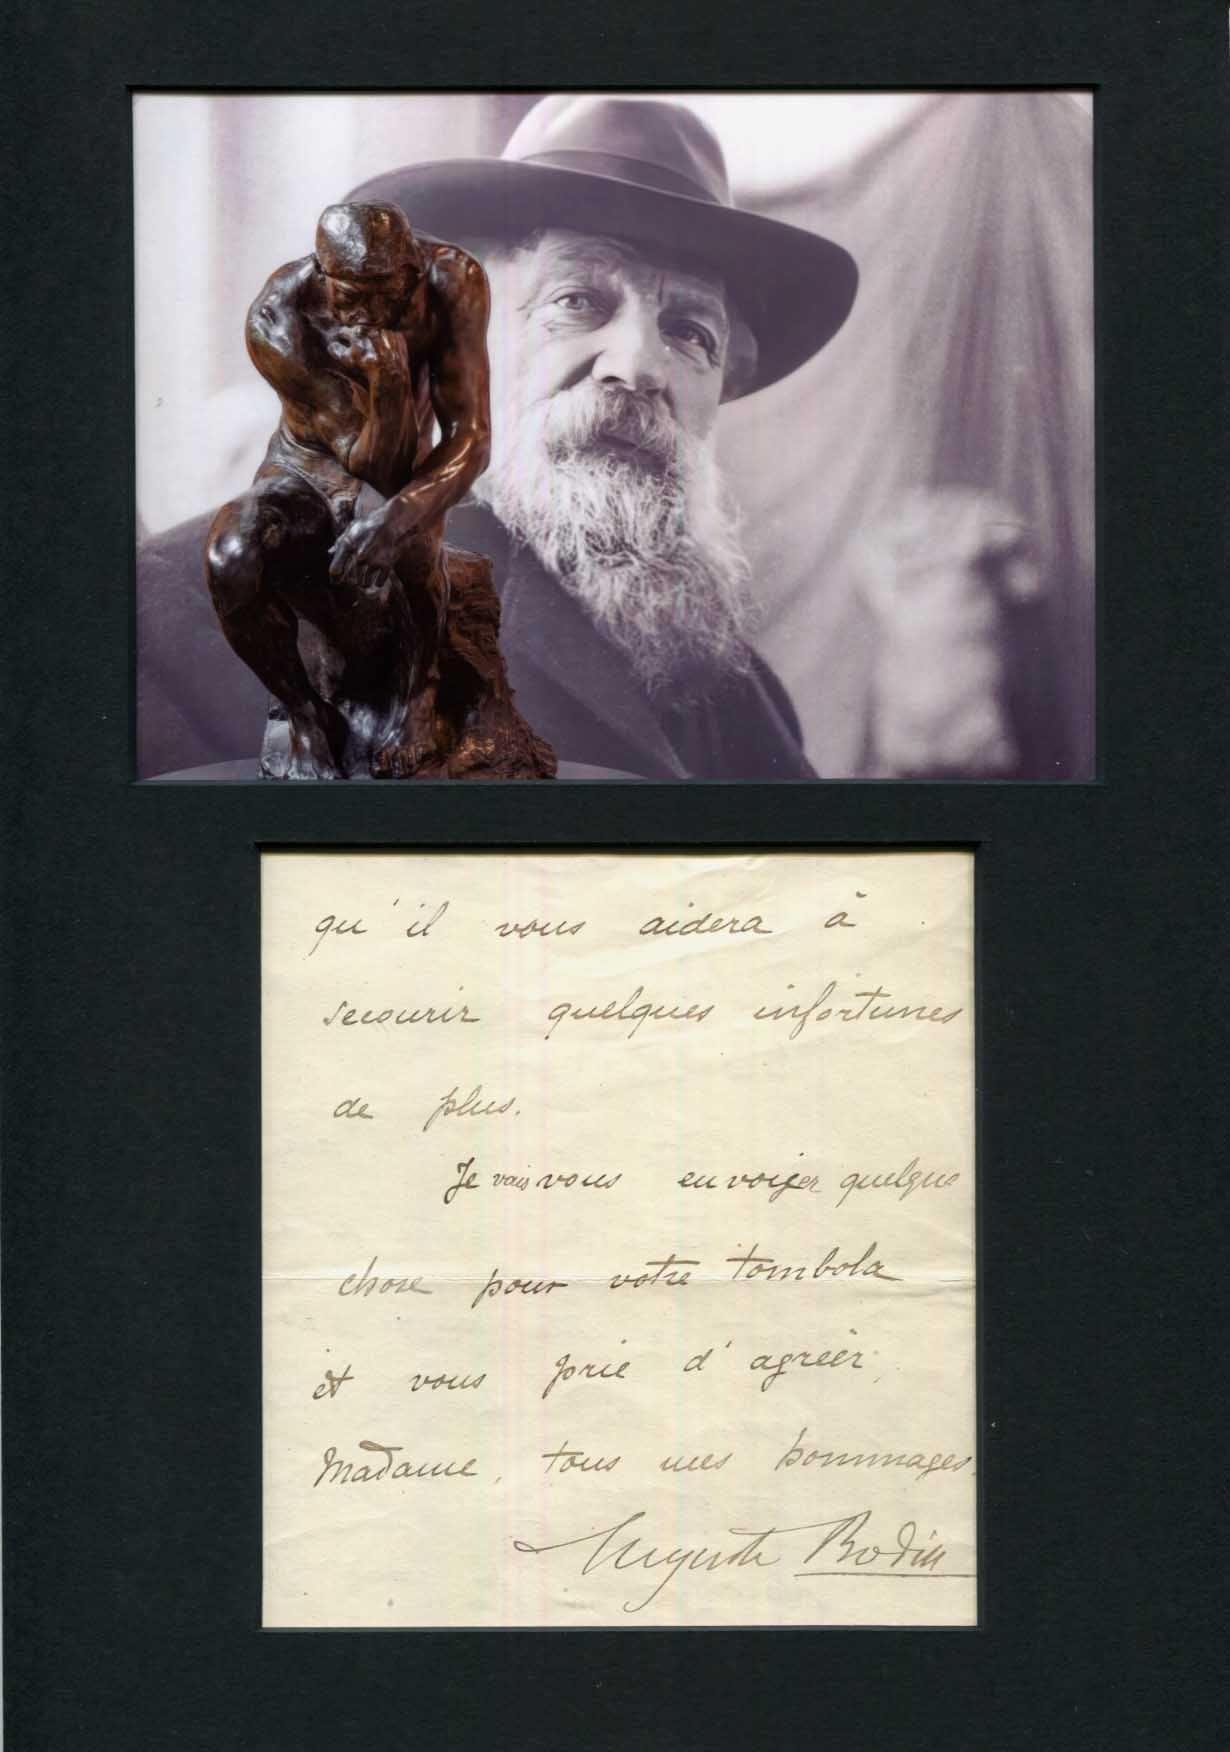 qu'il vous aidera à
secourir quelques infortunes
de plus.
Je vais vous envoyer quelque
chose pour votre tombola
et vous prie d'agréer,
Madame, tous mes hommages.
Auguste Rodin